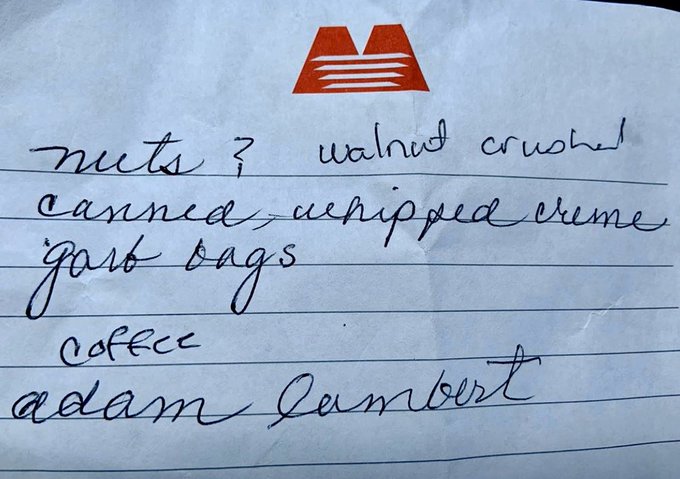 nuts ? walnut crushed
canned, whipped creme
garb bags
coffee
adam lambert